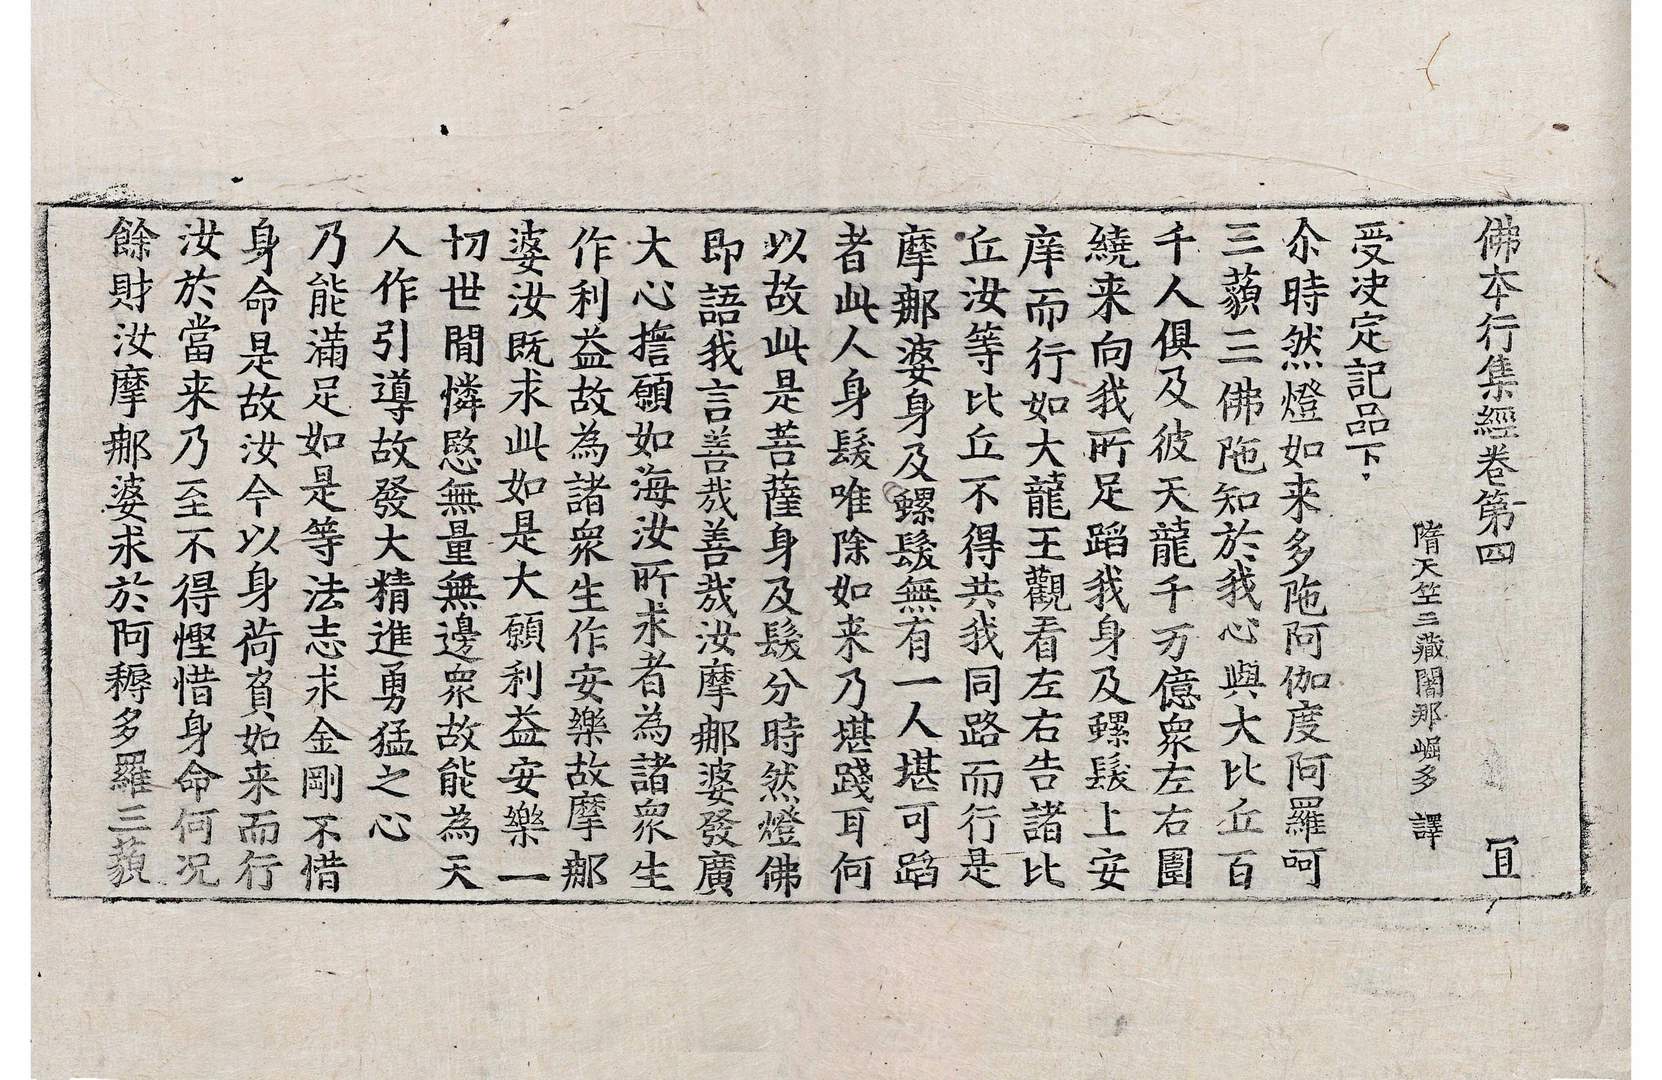 佛本行集經卷第四 宜
隋天竺三藏闍那崛多 譯
受決定記品下
尒時然燈如来多陁阿伽度阿羅呵
三藐三佛陁知於我心與大比丘百
千人俱及彼天龍千万億衆左右圍
繞来向我所足蹈我身及螺髮上安
庠而行如大龍王觀看左右告諸比
丘汝等比丘不得共我同路而行是
摩那婆身及螺髮無有一人堪可蹈
者此人身髮唯除如来乃堪踐耳何
以故此是菩薩身及髮分時然燈佛
即語我言善哉善哉汝摩那婆發廣
大心擔願如海汝所求者為諸衆生
作利益故為諸衆生作安樂故摩那
婆汝既求此如是大願利益安樂一
切世間憐愍無量無邊衆故能為天
人作引導故發大精進勇猛之心
乃能滿足如是等法志求金剛不惜
身命是故汝今以身荷負如来而行
汝於當来乃至不得慳惜身命何况
餘財汝摩那婆求於阿耨多羅三藐